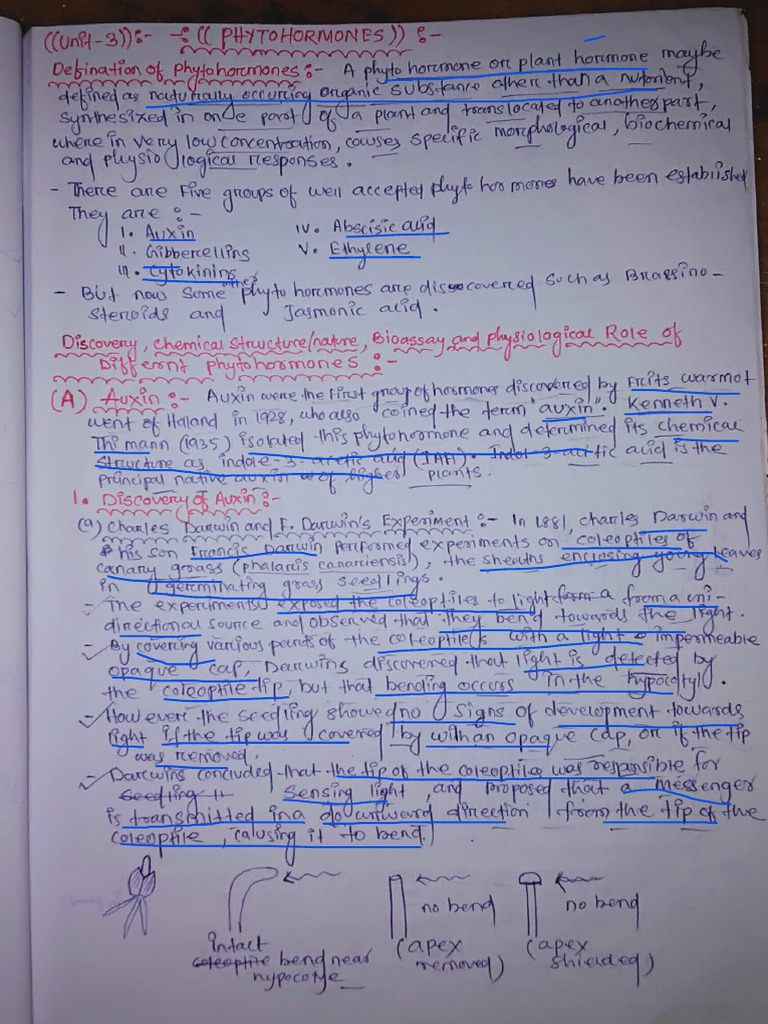 ((Unit-3)):- -: (( PHYTOHORMONES )) :-
Defination of phytohormones:- A phyto hormone or plant hormone maybe
defined as naturally occuring organic substance other than a nutrient,
synthesized in one part of a plant and translocated to another part,
where in very low concentration, causes specific morphological, biochemical
and physiological responses.
- There are Five groups of well accepted phyto hormones have been established
They are :-
I. Auxin IV. Abscisic acid
II. Gibbercellins V. Ethylene
III. Cytokinins
- But now some other phyto hormones are discovered such as Brassino-
steroids and Jasmonic acid.
Discovery, chemical structure/nature, Bioassay and physiological Role of
Differnt phytohormones :-
(A) Auxin :- Auxin were the First group of hormones discovered by Frits warmot
went of Holand in 1928, who also coined the term "auxin". Kenneth V.
Thimann (1935) isolated this phytohormone and determined its chemical
structure as indole-3-acetic acid (IAA). Indol-3-acitic acid is the
principal native auxin of higher plants.
1. Discovery of Auxin:-
(a) Charles Darwin and F. Darwin's Experiment :- In 1881, charles Darwin and
his son Francis Darwin performed experiments on coleoptiles of
canary grass (phalaris canariensis), the sheaths enclosing young leaves
in germinating grass seedlings.
- The experiments exposed the coleoptiles to light form a from a uni-
directional source and observed that they bend towards the light.
- By covering various parts of the coleoptiles with a light impermeable
opaque cap, Darwins discovered that light is detected by
the coleoptile tip, but that bending occurs in the hypocotyl.
- However the seedling showed no signs of development towards
light if the tip was covered by with an opaque cap, or if the tip
was removed.
- Darwins concluded that the tip of the coleoptiles was responsible for
seedling sensing light, and proposed that a messenger
is transmitted in a downward direction from the tip of the
coleoptile, calusing it to bend.
no bend no bend
intact (apex (apex
coleoptile bend near removed) shielded)
hypocotye